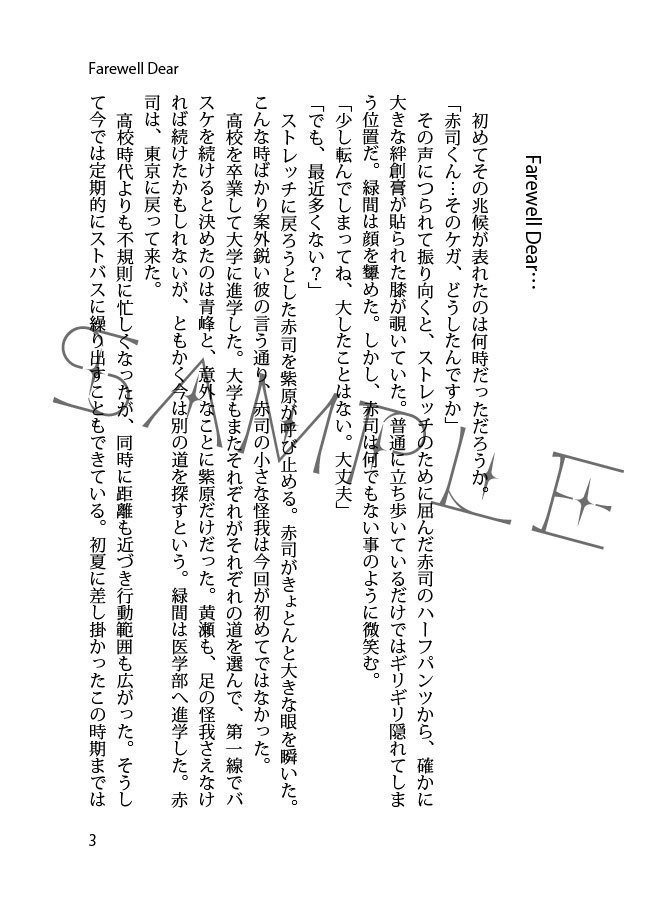 Farewell Dear
Farewell Dear…
初めてその兆候が表れたのは何時だっただろうか。
「赤司くん…そのケガ、どうしたんですか」
その声につられて振り向くと、ストレッチのために屈んだ赤司のハーフパンツから、確かに
大きな絆創膏が貼られた膝が覗いていた。普通に立ち歩いているだけではギリギリ隠れてしま
う位置だ。緑間は顔を顰めた。しかし、赤司は何でもない事のように微笑む。
「少し転んでしまってね、大したことはない。大丈夫」
「でも、最近多くない？」
ストレッチに戻ろうとした赤司を紫原が呼び止める。赤司がきょとんと大きな眼を瞬いた。
こんな時ばかり案外鋭い彼の言う通り、赤司の小さな怪我は今回が初めてではなかった。
高校を卒業して大学に進学した。大学もまたそれぞれがそれぞれの道を選んで、第一線でバ
スケを続けると決めたのは青峰と、意外なことに紫原だけだった。黄瀬も、足の怪我さえなけ
れば続けたかもしれないが、ともかく今は別の道を探すという。緑間は医学部へ進学した。赤
司は、東京に戻って来た。
高校時代よりも不規則に忙しくなったが、同時に距離も近づき行動範囲も広がった。そうし
て今では定期的にストバスに繰り出すこともできている。初夏に差し掛かったこの時期までは
SAMPLE
3